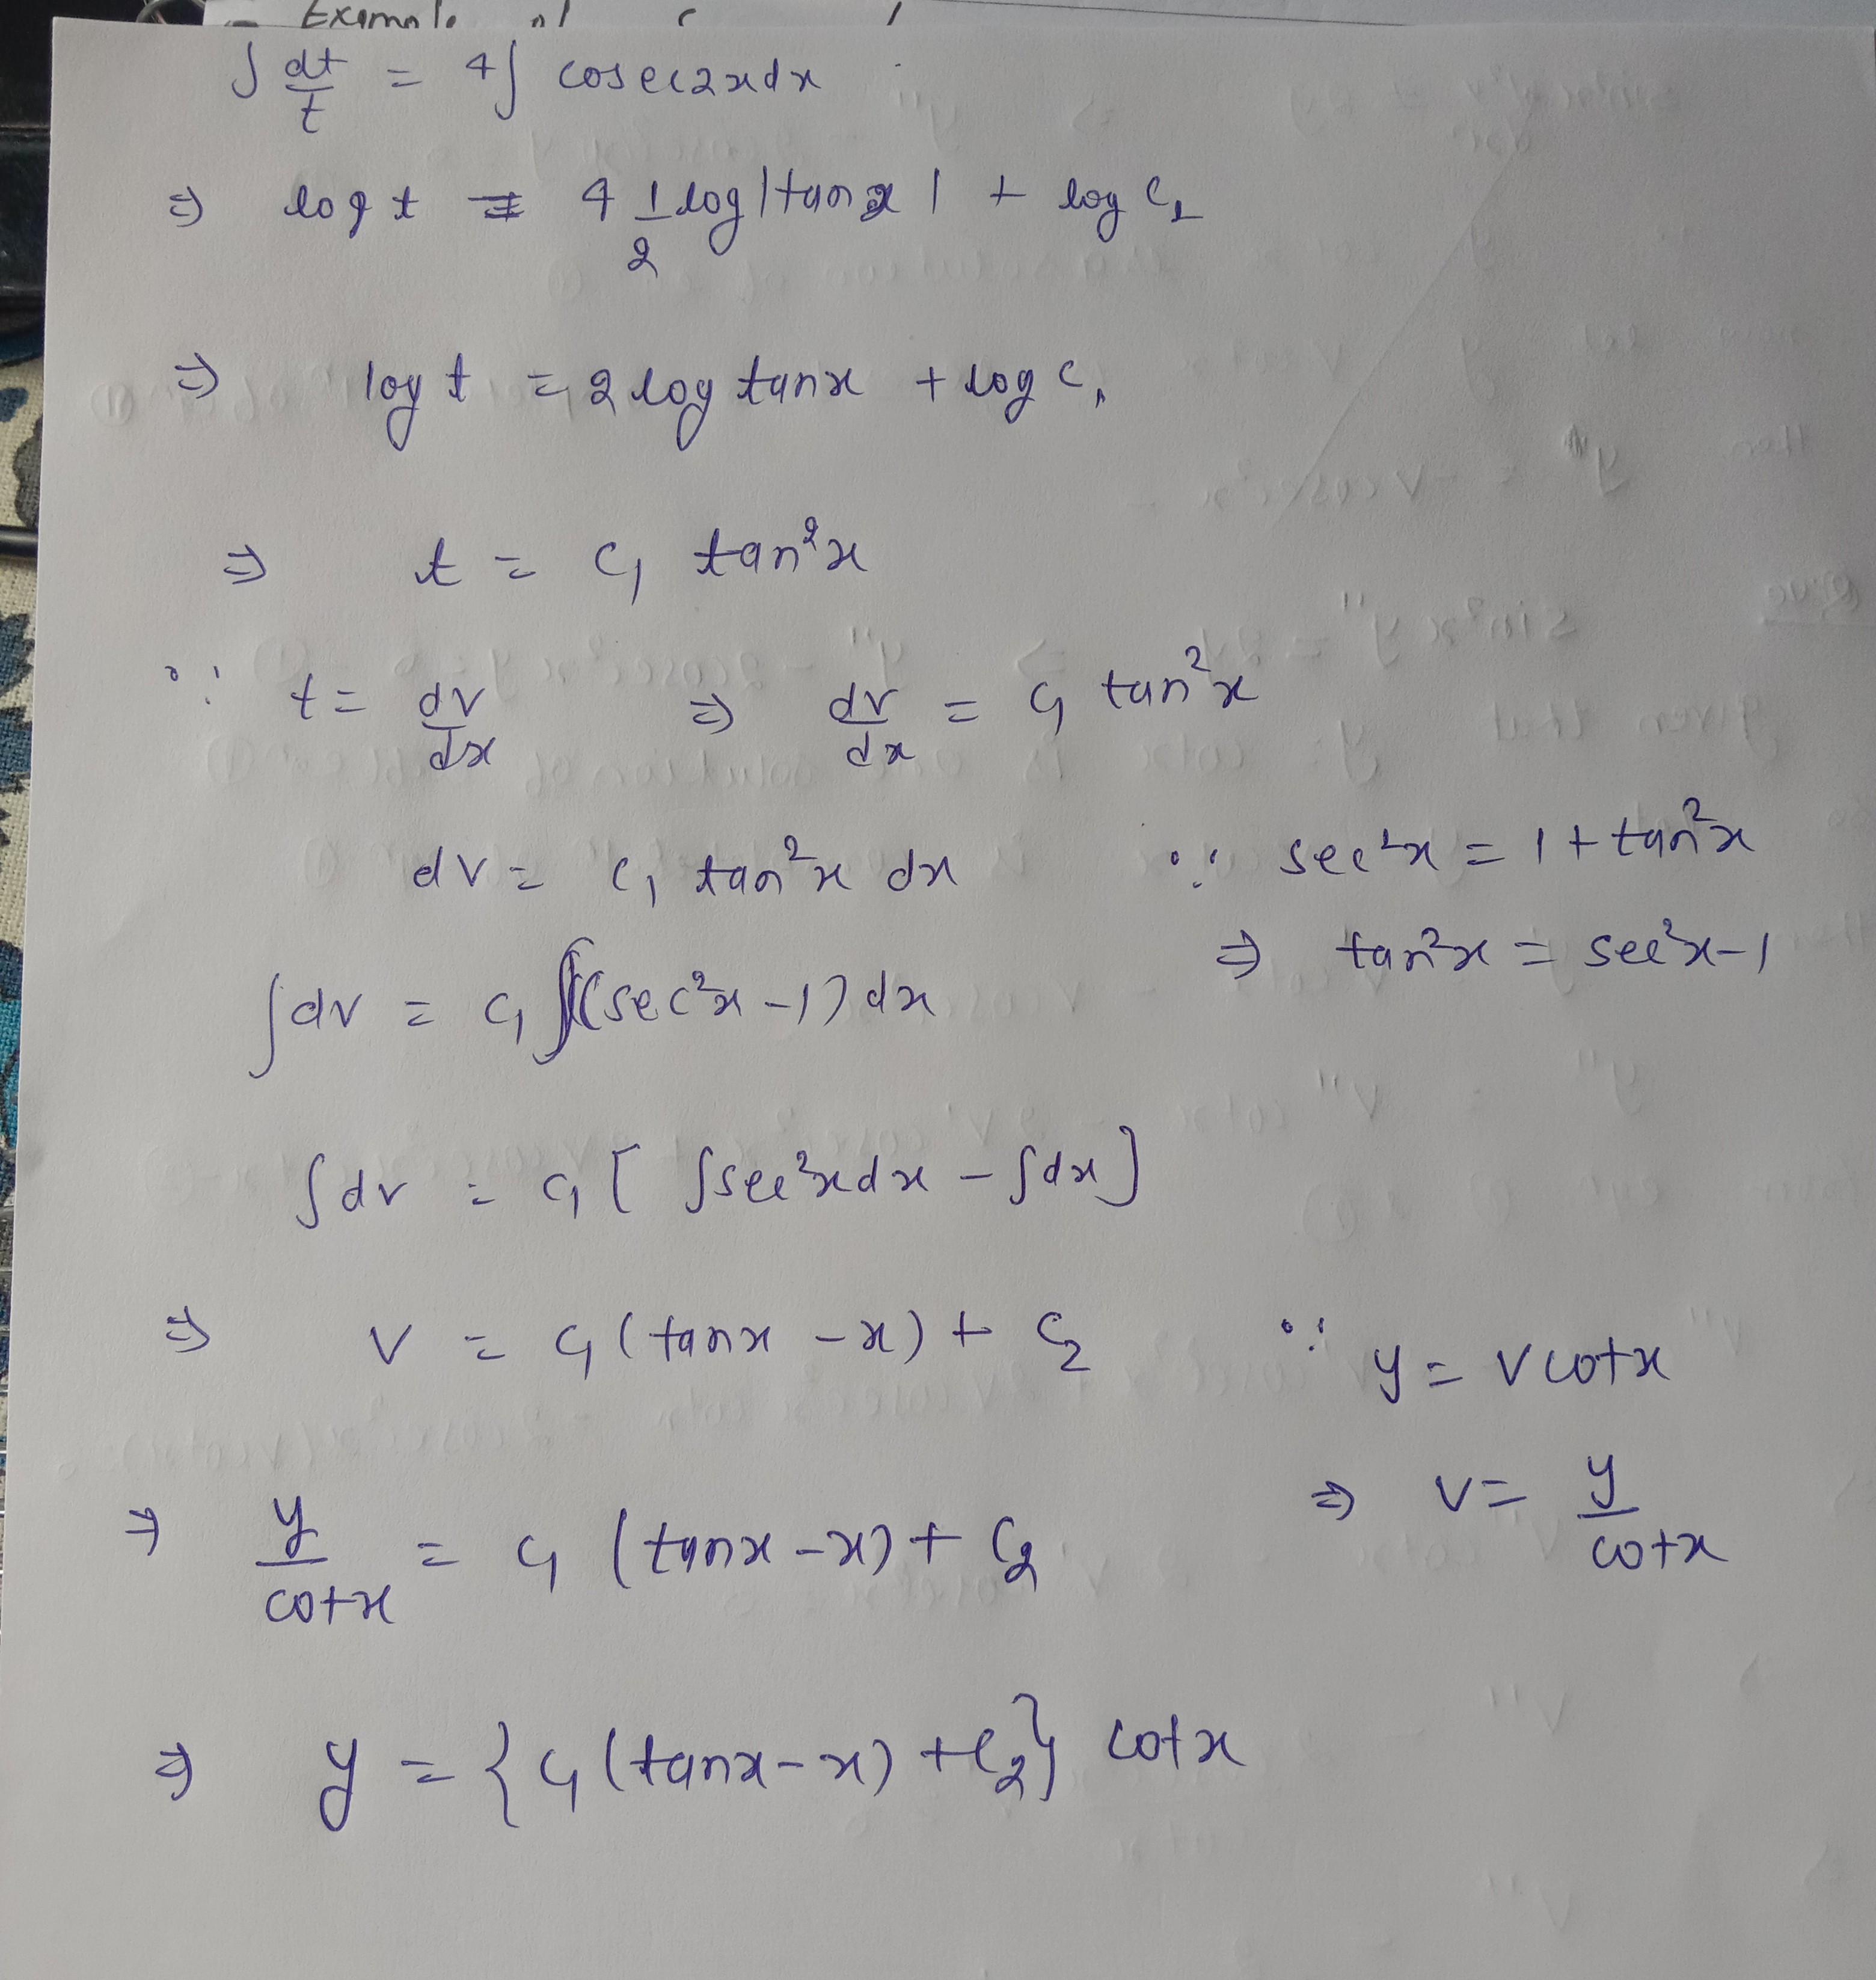 Example of
∫ dt/t = 4∫ cosec2xdx
⇒ log t = 4 1/2 log|tanx| + log c1
⇒ log t = 2 log tanx + log c1
⇒ t = c1 tan²x
∵ t = dv/dx ⇒ dv/dx = c1 tan²x
dv = c1 tan²x dx ∵ sec²x = 1 + tan²x
⇒ tan²x = sec²x-1
∫dv = c1 ∫(sec²x -1) dx
∫dv = c1 [ ∫sec²xdx - ∫dx]
⇒ v = c1(tanx - x) + c2 ∵ y = v cotx
⇒ y/cotx = c1 (tanx - x) + c2 ⇒ v = y/cotx
⇒ y = {c1(tanx - x) + c2} cotx